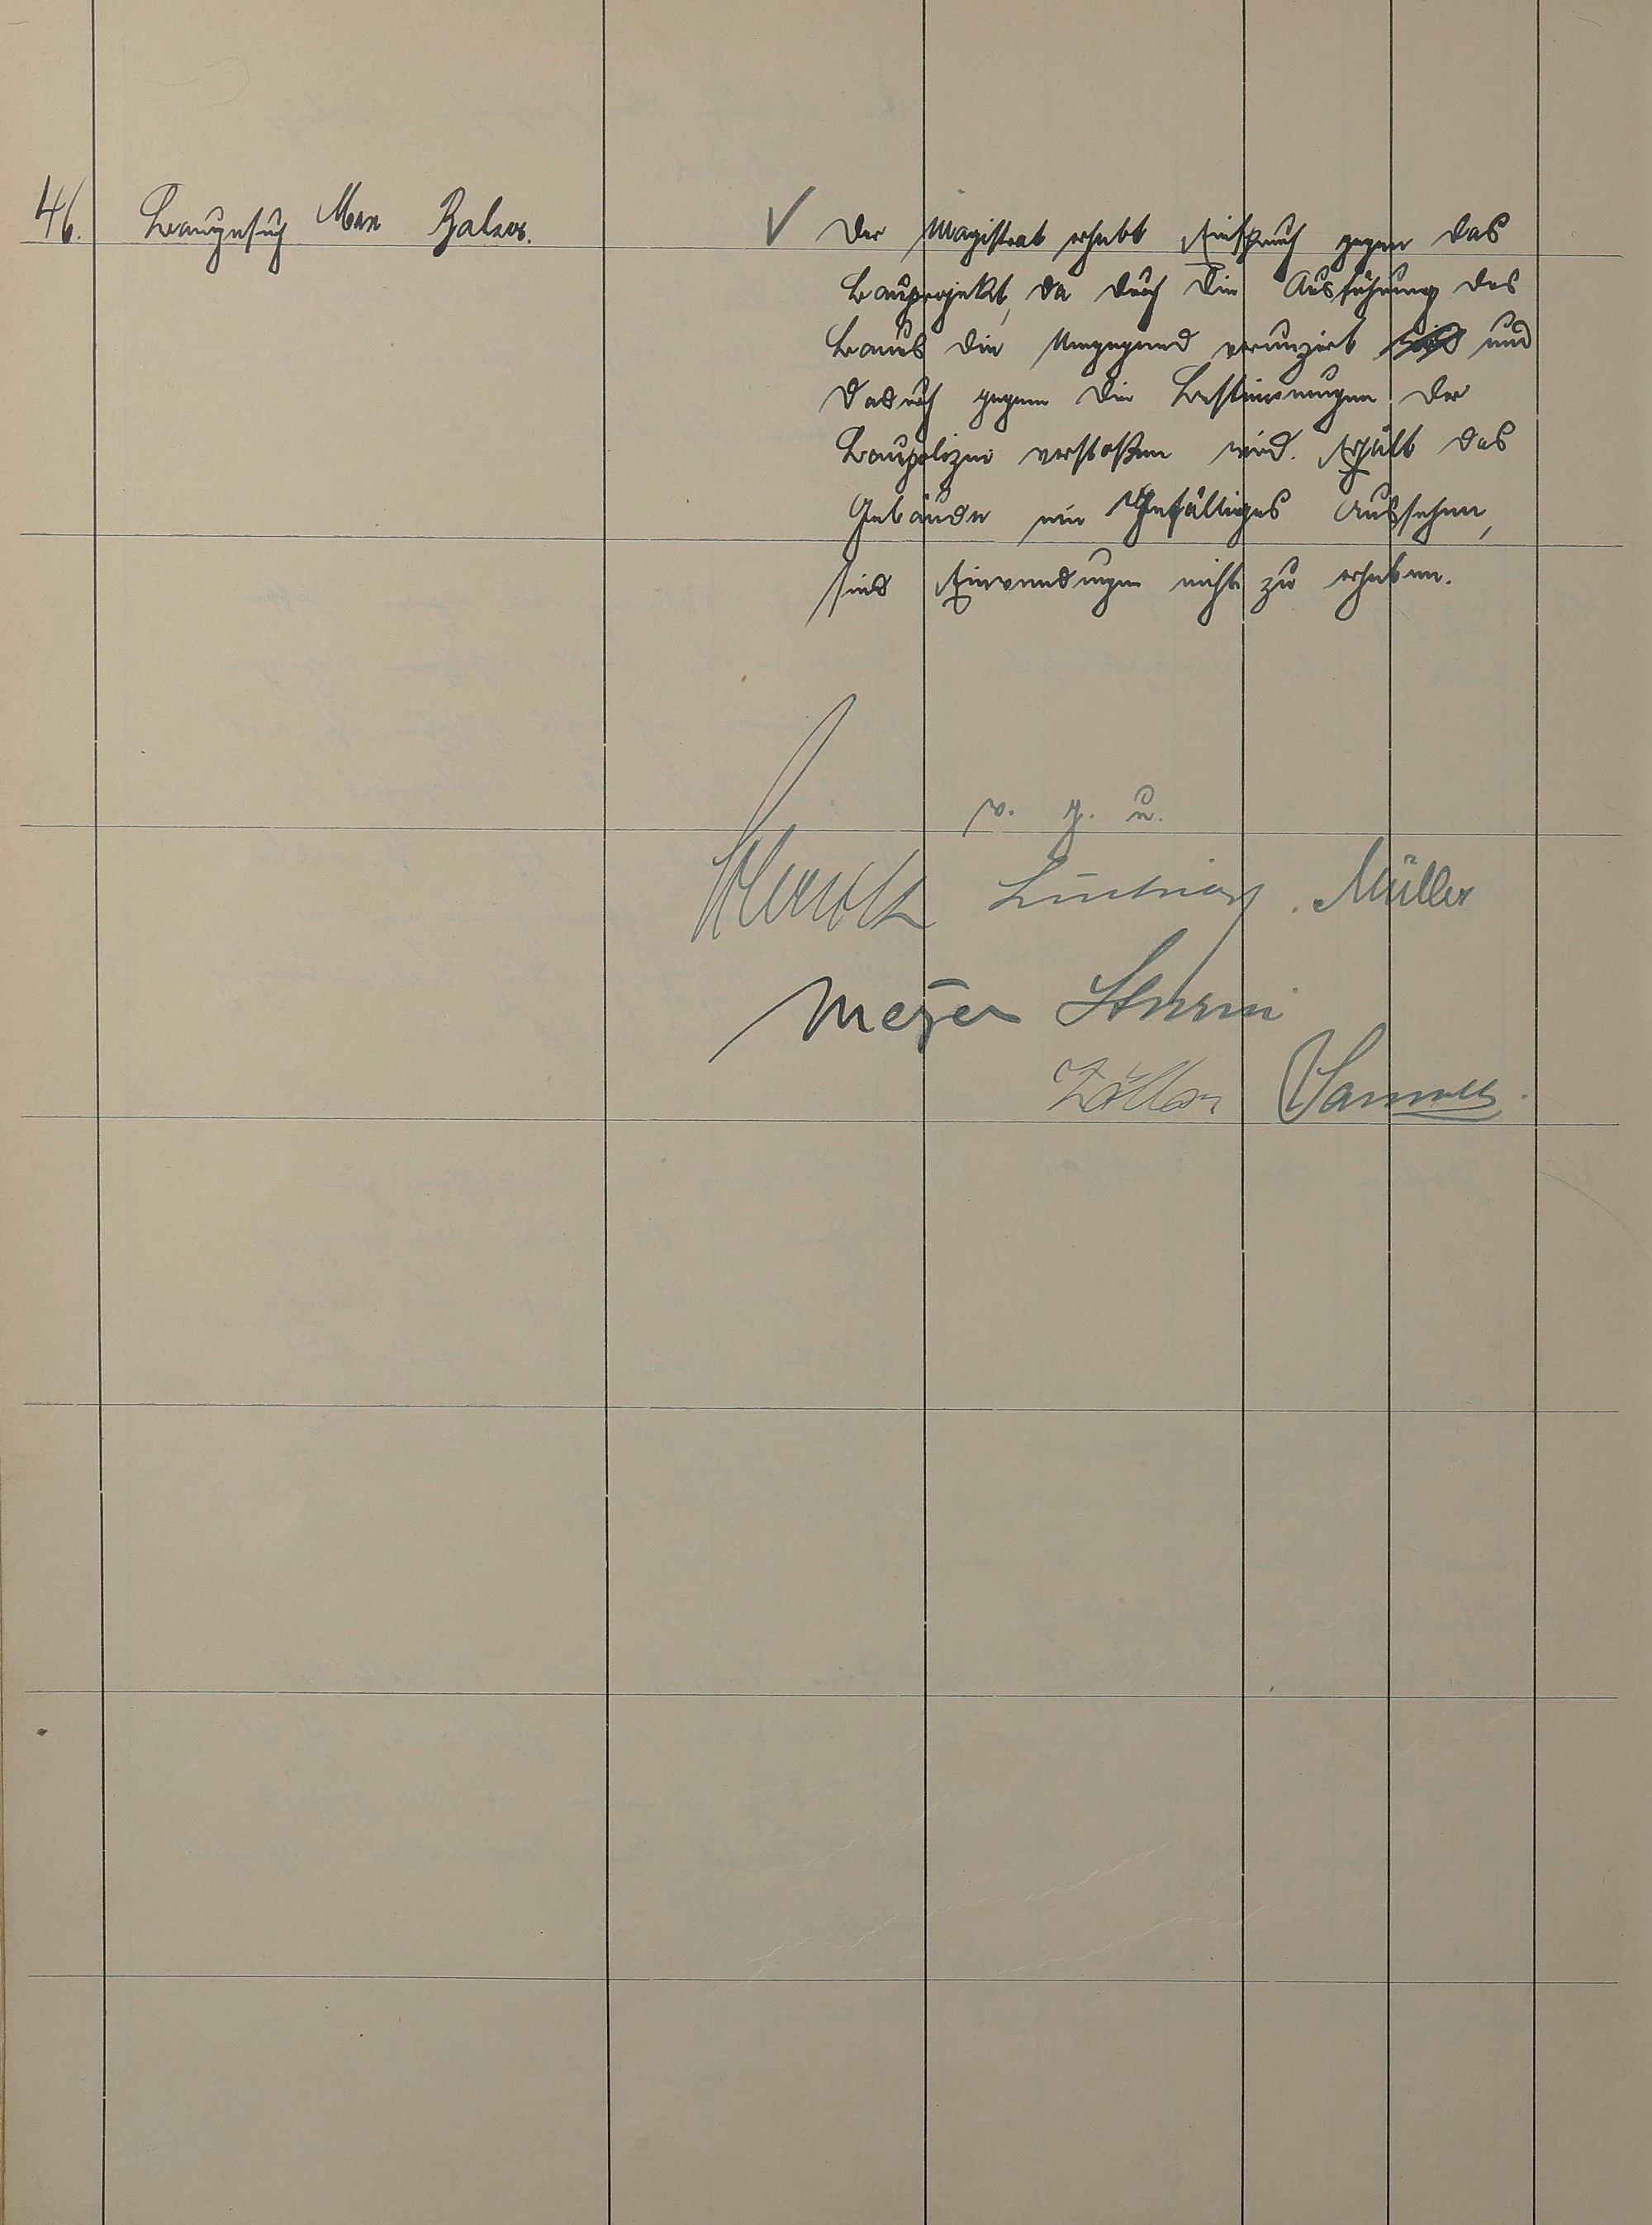 46. Baugesuch Max Balzer.
√ Der Magistrat erhebt Einspruch gegen das
Bauprojekt, da durch die Ausführung des
Baues die Umgegend verunziert und
dadurch gegen die Bestimmungen der
Baupolizei verstoßen wird. Erhält das
Gebäude ein gefälliges Aussehen,
sind Einwendungen nicht zu erheben.
v. g. u.
Ludwig. Müller
Meyer Sturm
Zöller